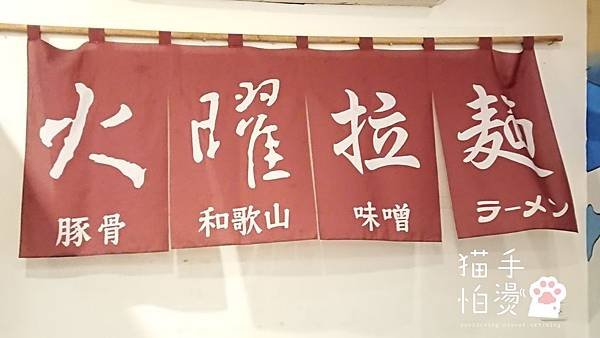 火曜拉麵
豚骨 和歌山 味噌 ラーメン
猫手
怕燙